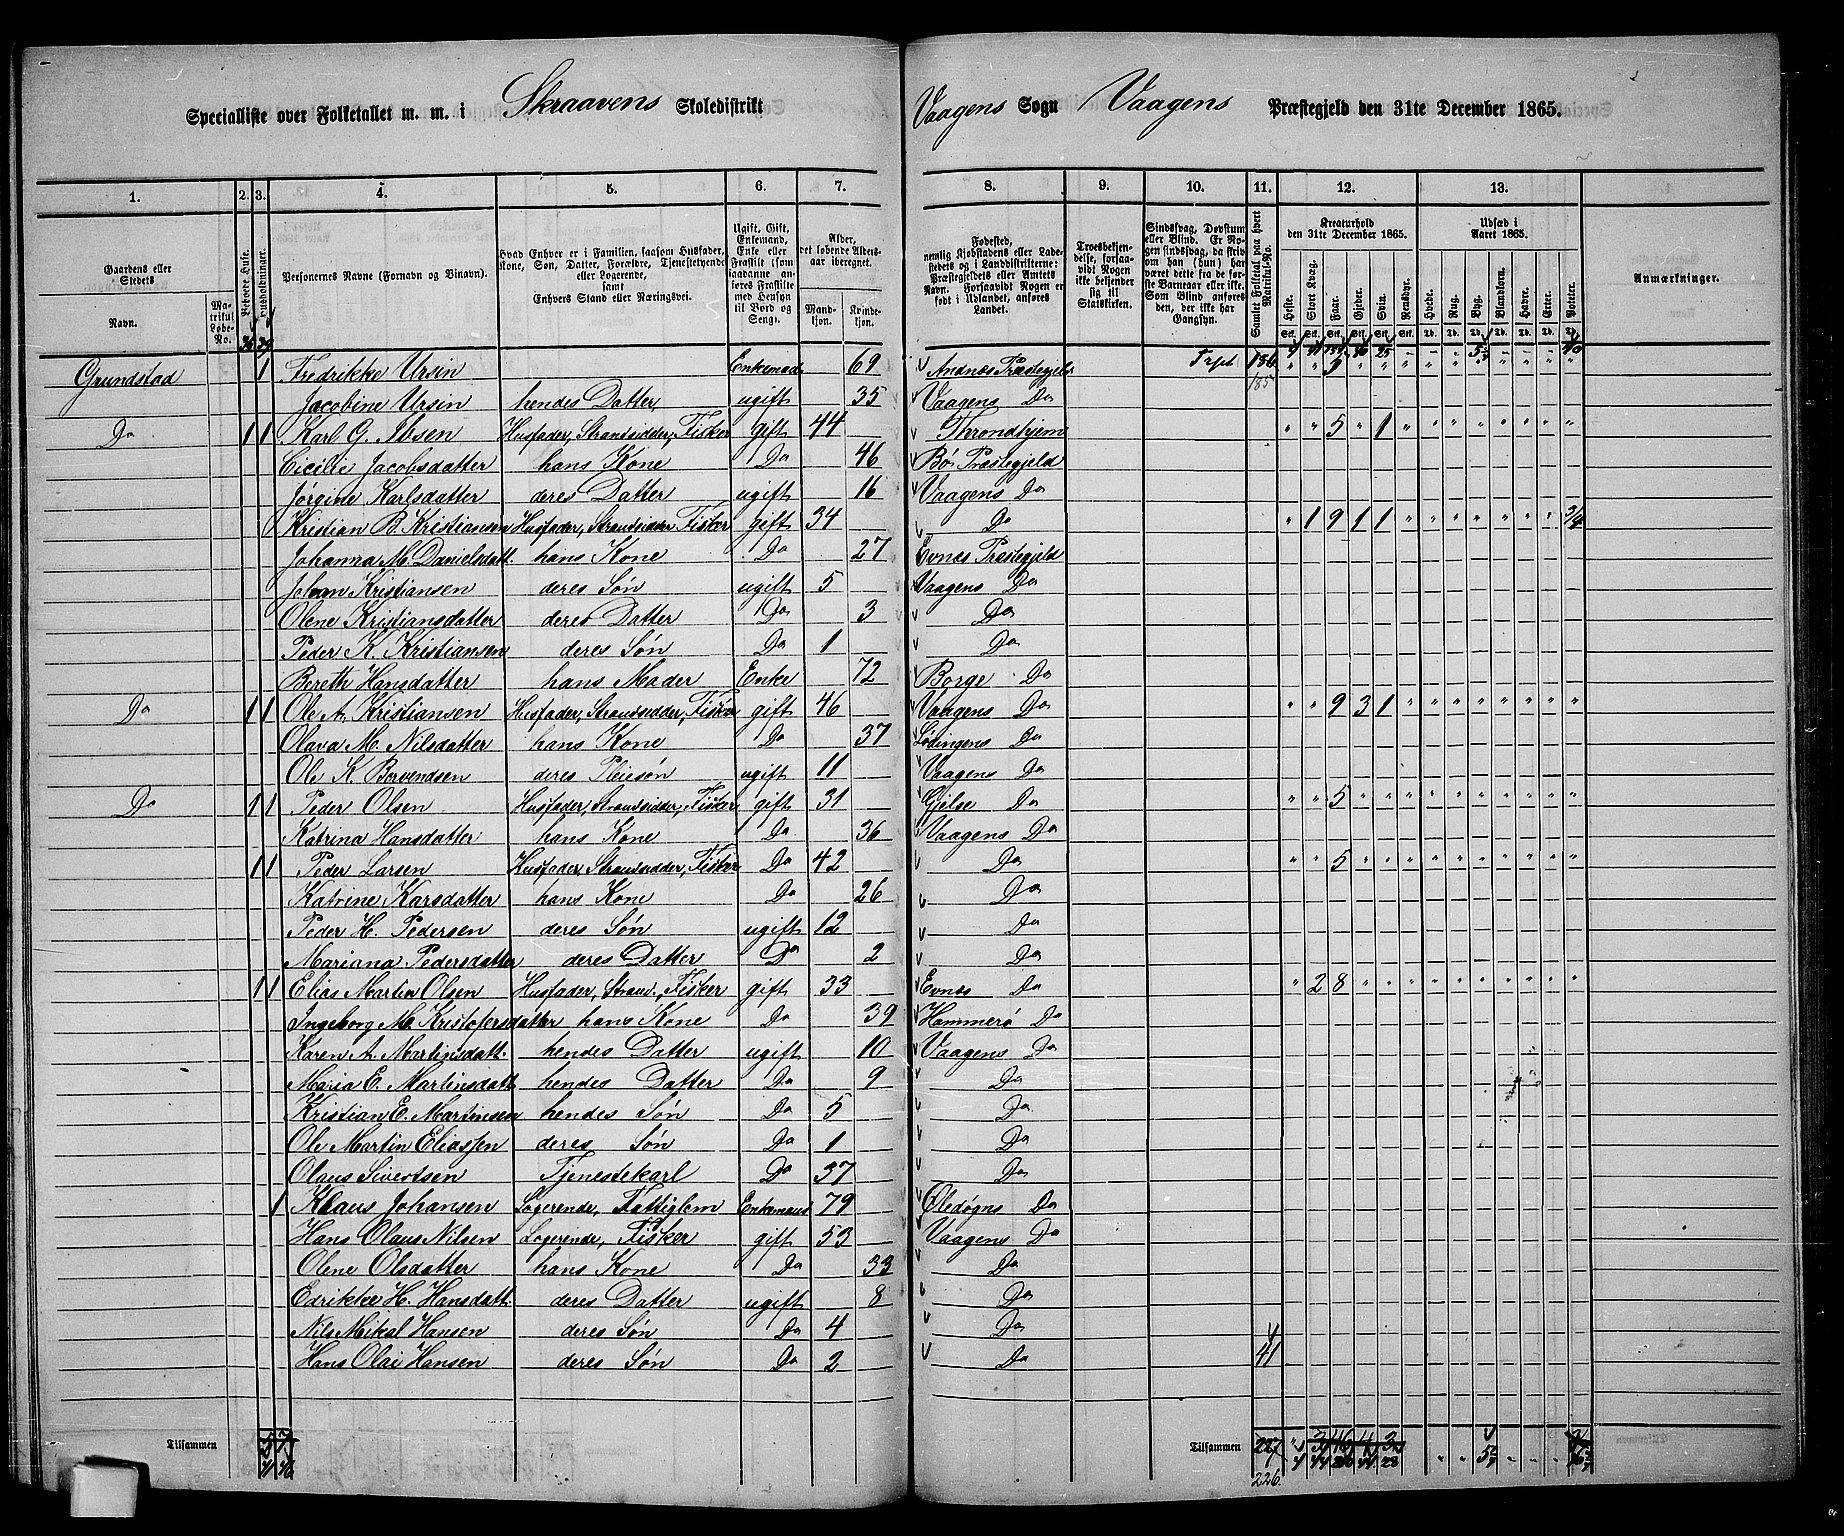 Specialliste over Folketallet m. m. i Skraavens Skoledistrikt Vaagens Sogn Vaagens Præstegjeld den 31te December 1865.
1. 2. 3. 4. 5. 6. 7. 8. 9. 10. 11. 12. 13.
Gaardens eller Stedets Navn. Matrikul Løbe-No. Beboede Huse. Husholdninger.
Personernes Navne (Fornavn og Tilnavn).
Hvad Enhver er i Familien, saasom Husfader, Kone, Søn, Datter, Forældre, Tjenestetyende eller Logerende, samt Enhvers Stand eller Næringsvei.
Ugift, Gift, Enkemand, Enke eller Fraskilt
Alder, det løbende Aldersaar iberegnet. Mandkjøn. Kvindekjøn.
Fødested, nemlig Kjøbstadens eller Ladestedets og i Landdistrikterne: Præstegjeldets eller Amtets Navn. Forsaavidt Nogen er født i Udlandet, anføres Landet.
Troesbekjendelse, forsaavidt Nogen ikke bekjender sig til Statskirken.
Sindssvag, Døvstum eller Blind.
Samlet Folketal paa hvert Matrikul-No.
Kreaturhold den 31te December 1865. Heste. Stort Kvæg. Faar. Gjeder. Sviin. Rensdyr.
Udsæd i Aaret 1865. Hvede. Rug. Byg. Blandkorn. Havre. Erter. Poteter.
Anmærkninger.
Grundstad 1 Fredrikke Ursin 69 Andnæs Præstegjeld
Jacobine Ursin hendes Datter, ugift 35 Vaagens Do
Do 1 1 Karl G. Ibsen Husfader, Strandsidder, Fisker gift 44 Throndhjem " " 5 " 1 " " " " " " " "
Cicilie Jacobsdatter hans Kone Do 46 Bø Præstegjeld
Jørgine Karlsdatter deres Datter ugift 16 Vaagens Do
Kristian B. Kristiansen Husfader, Strandsidder Fisker gift 34 Do " 1 9 1 1 " " " " " " " 3/4
Johanna M. Danielsdatt. hans Kone Do 27 Evnæs Præstegjeld
Johan Kristiansen deres Søn ugift 5 Vaagens Do
Olene Kristiansdatter deres Datter Do 3 Do
Peder K. Kristiansen deres Søn Do 1 Do
Bereth Hansdatter hans Moder Enke 72 Borge Do
Do 1 1 Ole A. Kristiansen Husfader, Strandsidder, Fisker gift 46 Vaagens Do " " 9 3 1 " " " " " " " "
Olava M. Nilsdatter hans Kone Do 37 Lødingens Do
Ole K. Berendsen deres Pleiesøn ugift 11 Vaagens Do
Do 1 1 Peder Olsen Husfader, Strandsidder, Fisker gift 31 Do " " 5 " " " " " " " " " "
Katrina Hansdatter hans Kone Do 36 Vaagens Do
1 1 Peder Larsen Husfader, Strandsidder, Fisker Do 42 Do " " 5 " " " " " " " " " "
Katrine Karsdatter hans Kone Do 26 Do
Peder H. Pedersen deres Søn ugift 12 Do
Mariana Pedersdatter deres Datter Do 2 Do
1 1 Elias Martin Olsen Husfader, Strand., Fisker gift 33 Evnæs Do " 2 8 " " " " " " " " " "
Ingeborg M. Kristofersdatter hans Kone Do 39 Hammerø Do
Karen A. Martinsdatt. hendes Datter ugift 10 Vaagens Do
Maria E. Martinsdatt. hendes Datter Do 9 Do
Kristian E. Martinsen hendes Søn Do 5 Do
Ole Martin Eliassen deres Søn Do 1 Do
Olaus Sivertsen Tjenestekarl Do 37 Do
1 Klaus Johansen Logerende, Fattiglem Enkemand 79 Do
Hans Olaus Nilsen Logerende, Fisker gift 53 Vaagens Do
Olene Olsdatter hans Kone Do 33 Do
Edrikke H. Hansdatt. deres Datter ugift 8 Do
Nils Mikal Hansen deres Søn Do 4 Do
Hans Olai Hansen deres Søn Do 2 Do 41
Tilsammen
Tilsammen 227
226